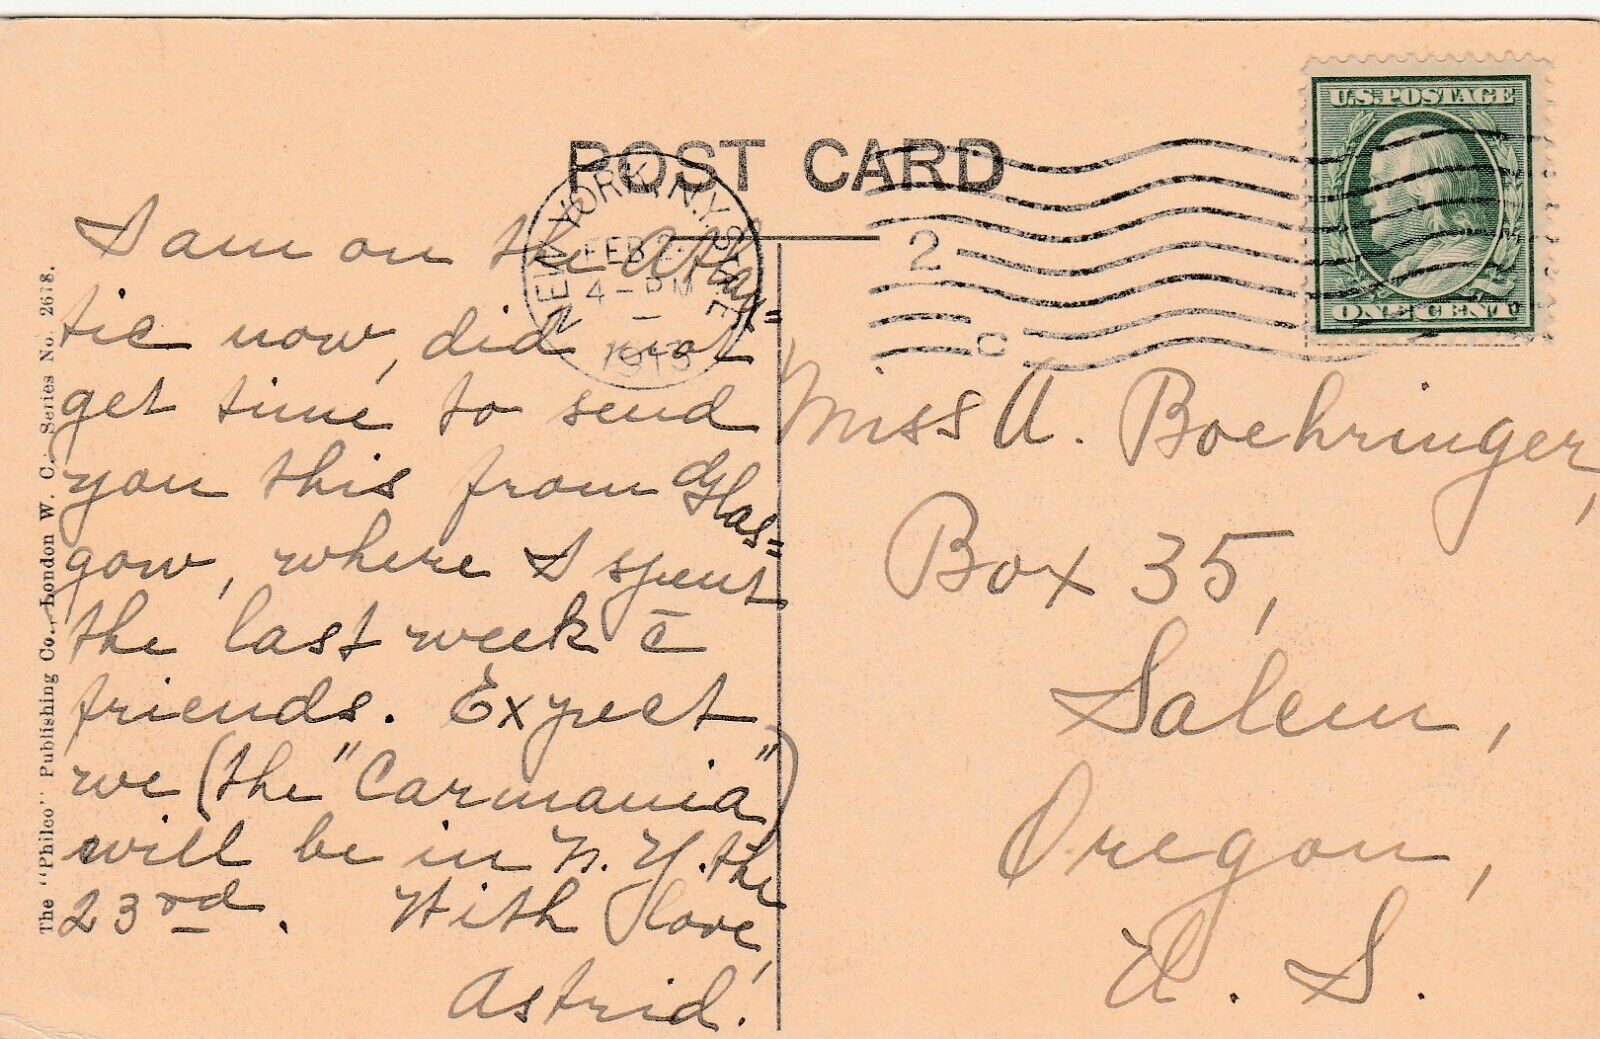 POST CARD
U.S. POSTAGE
ONE CENT
NEW YORK, N.Y.
FEB 2
4 - PM
1913
2
C
I am on the Atlan=
tic now, did not
get time to send
you this from Glas=
gow, where I spent
the last week c̄
friends. Expect
we (the "Carmania")
will be in N. Y. the
23rd. With love,
Astrid.
Miss A. Boehringer,
Box 35,
Salem,
Oregon,
U. S.
The "Philco" Publishing Co., London W. C. Series No. 2678.